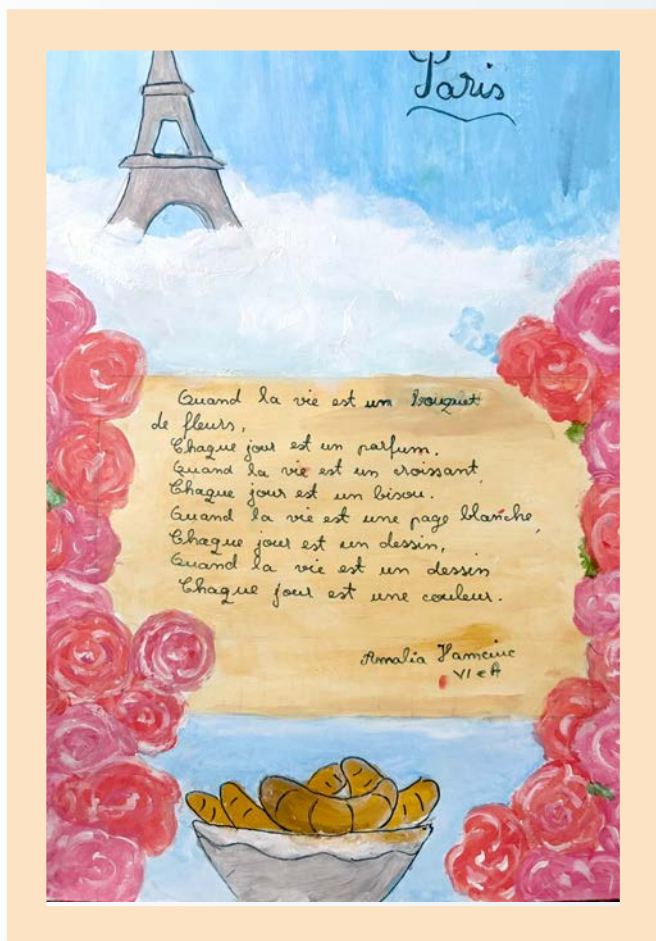 Paris
Quand la vie est un bouquet
de fleurs,
Chaque jour est un parfum.
Quand la vie est un croissant,
Chaque jour est un bisou.
Quand la vie est une page blanche,
Chaque jour est un dessin,
Quand la vie est un dessin
Chaque jour est une couleur.
Amalia
VI e A